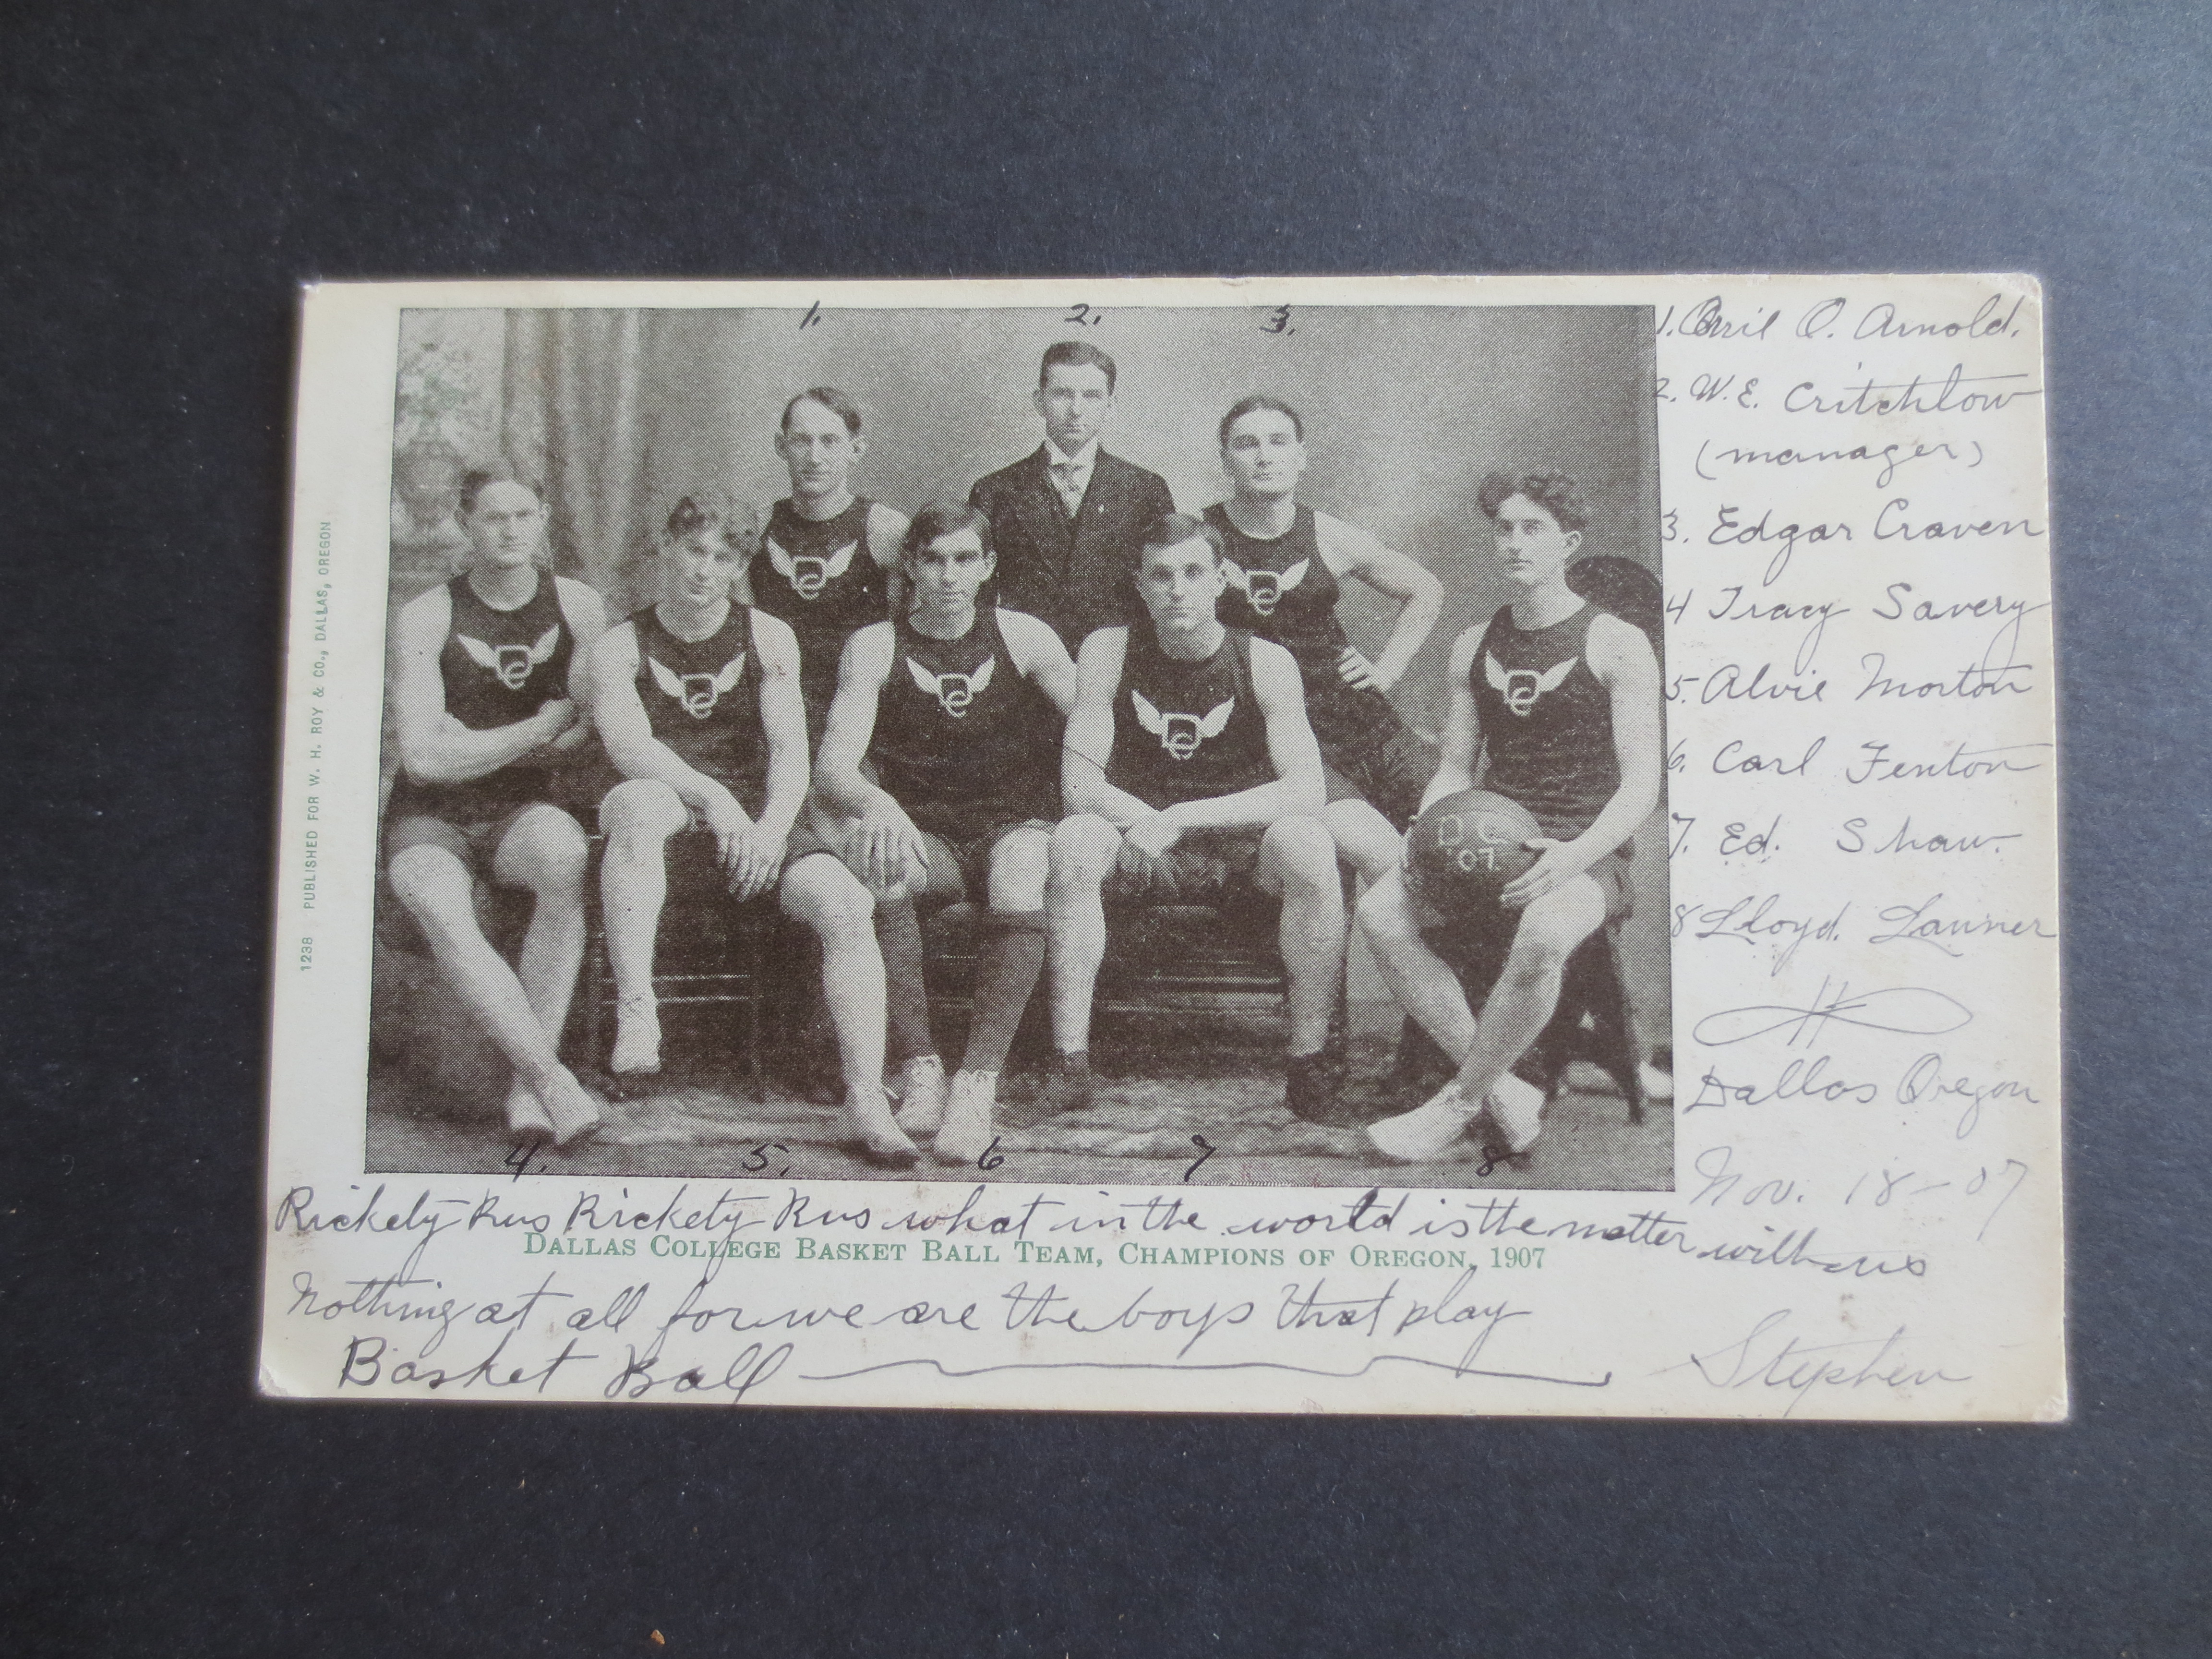 1. 2. 3.
1. Orril O. Arnold.
2. W. E. Critchlow
(manager)
3. Edgar Craven
4 Tracy Savery
5. Alvie Morton
6. Carl Fenton
7. Ed. Shaw.
8 Lloyd. Launer
Dallas Oregon
Nov. 18-07
1238 PUBLISHED FOR W. H. ROY & CO., DALLAS, OREGON
DC
DC
DC
DC
DC
DC
DC
D.C.
07.
4. 5. 6 7 8
Rickety Rus Rickety Rus what in the world is the matter with us
DALLAS COLLEGE BASKET BALL TEAM, CHAMPIONS OF OREGON, 1907
Nothing at all for we are the boys that play
Basket Ball
Stephen